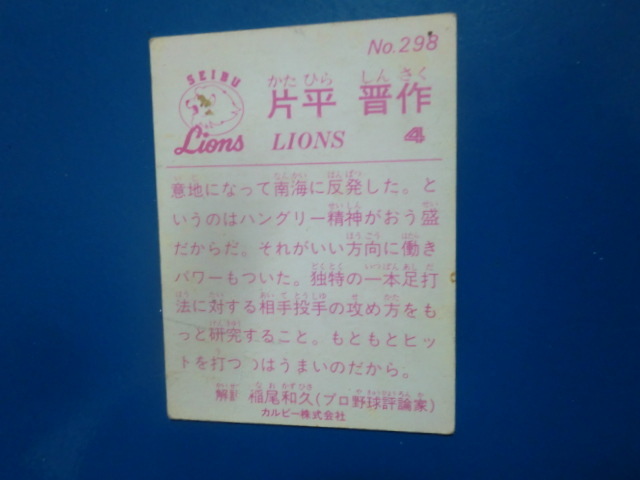 No.298
SEIBU
Lions
かた ひら しん さく
片平 晋作
LIONS 4
意地になって南海に反発した。と
いうのはハングリー精神がおう盛
だからだ。それがいい方向に働き
パワーもついた。独特の一本足打
法に対する相手投手の攻め方をも
っと研究すること。もともとヒッ
トを打つつはうまいのだから。
解 稲尾和久(プロ野球評論家)
カルビー株式会社